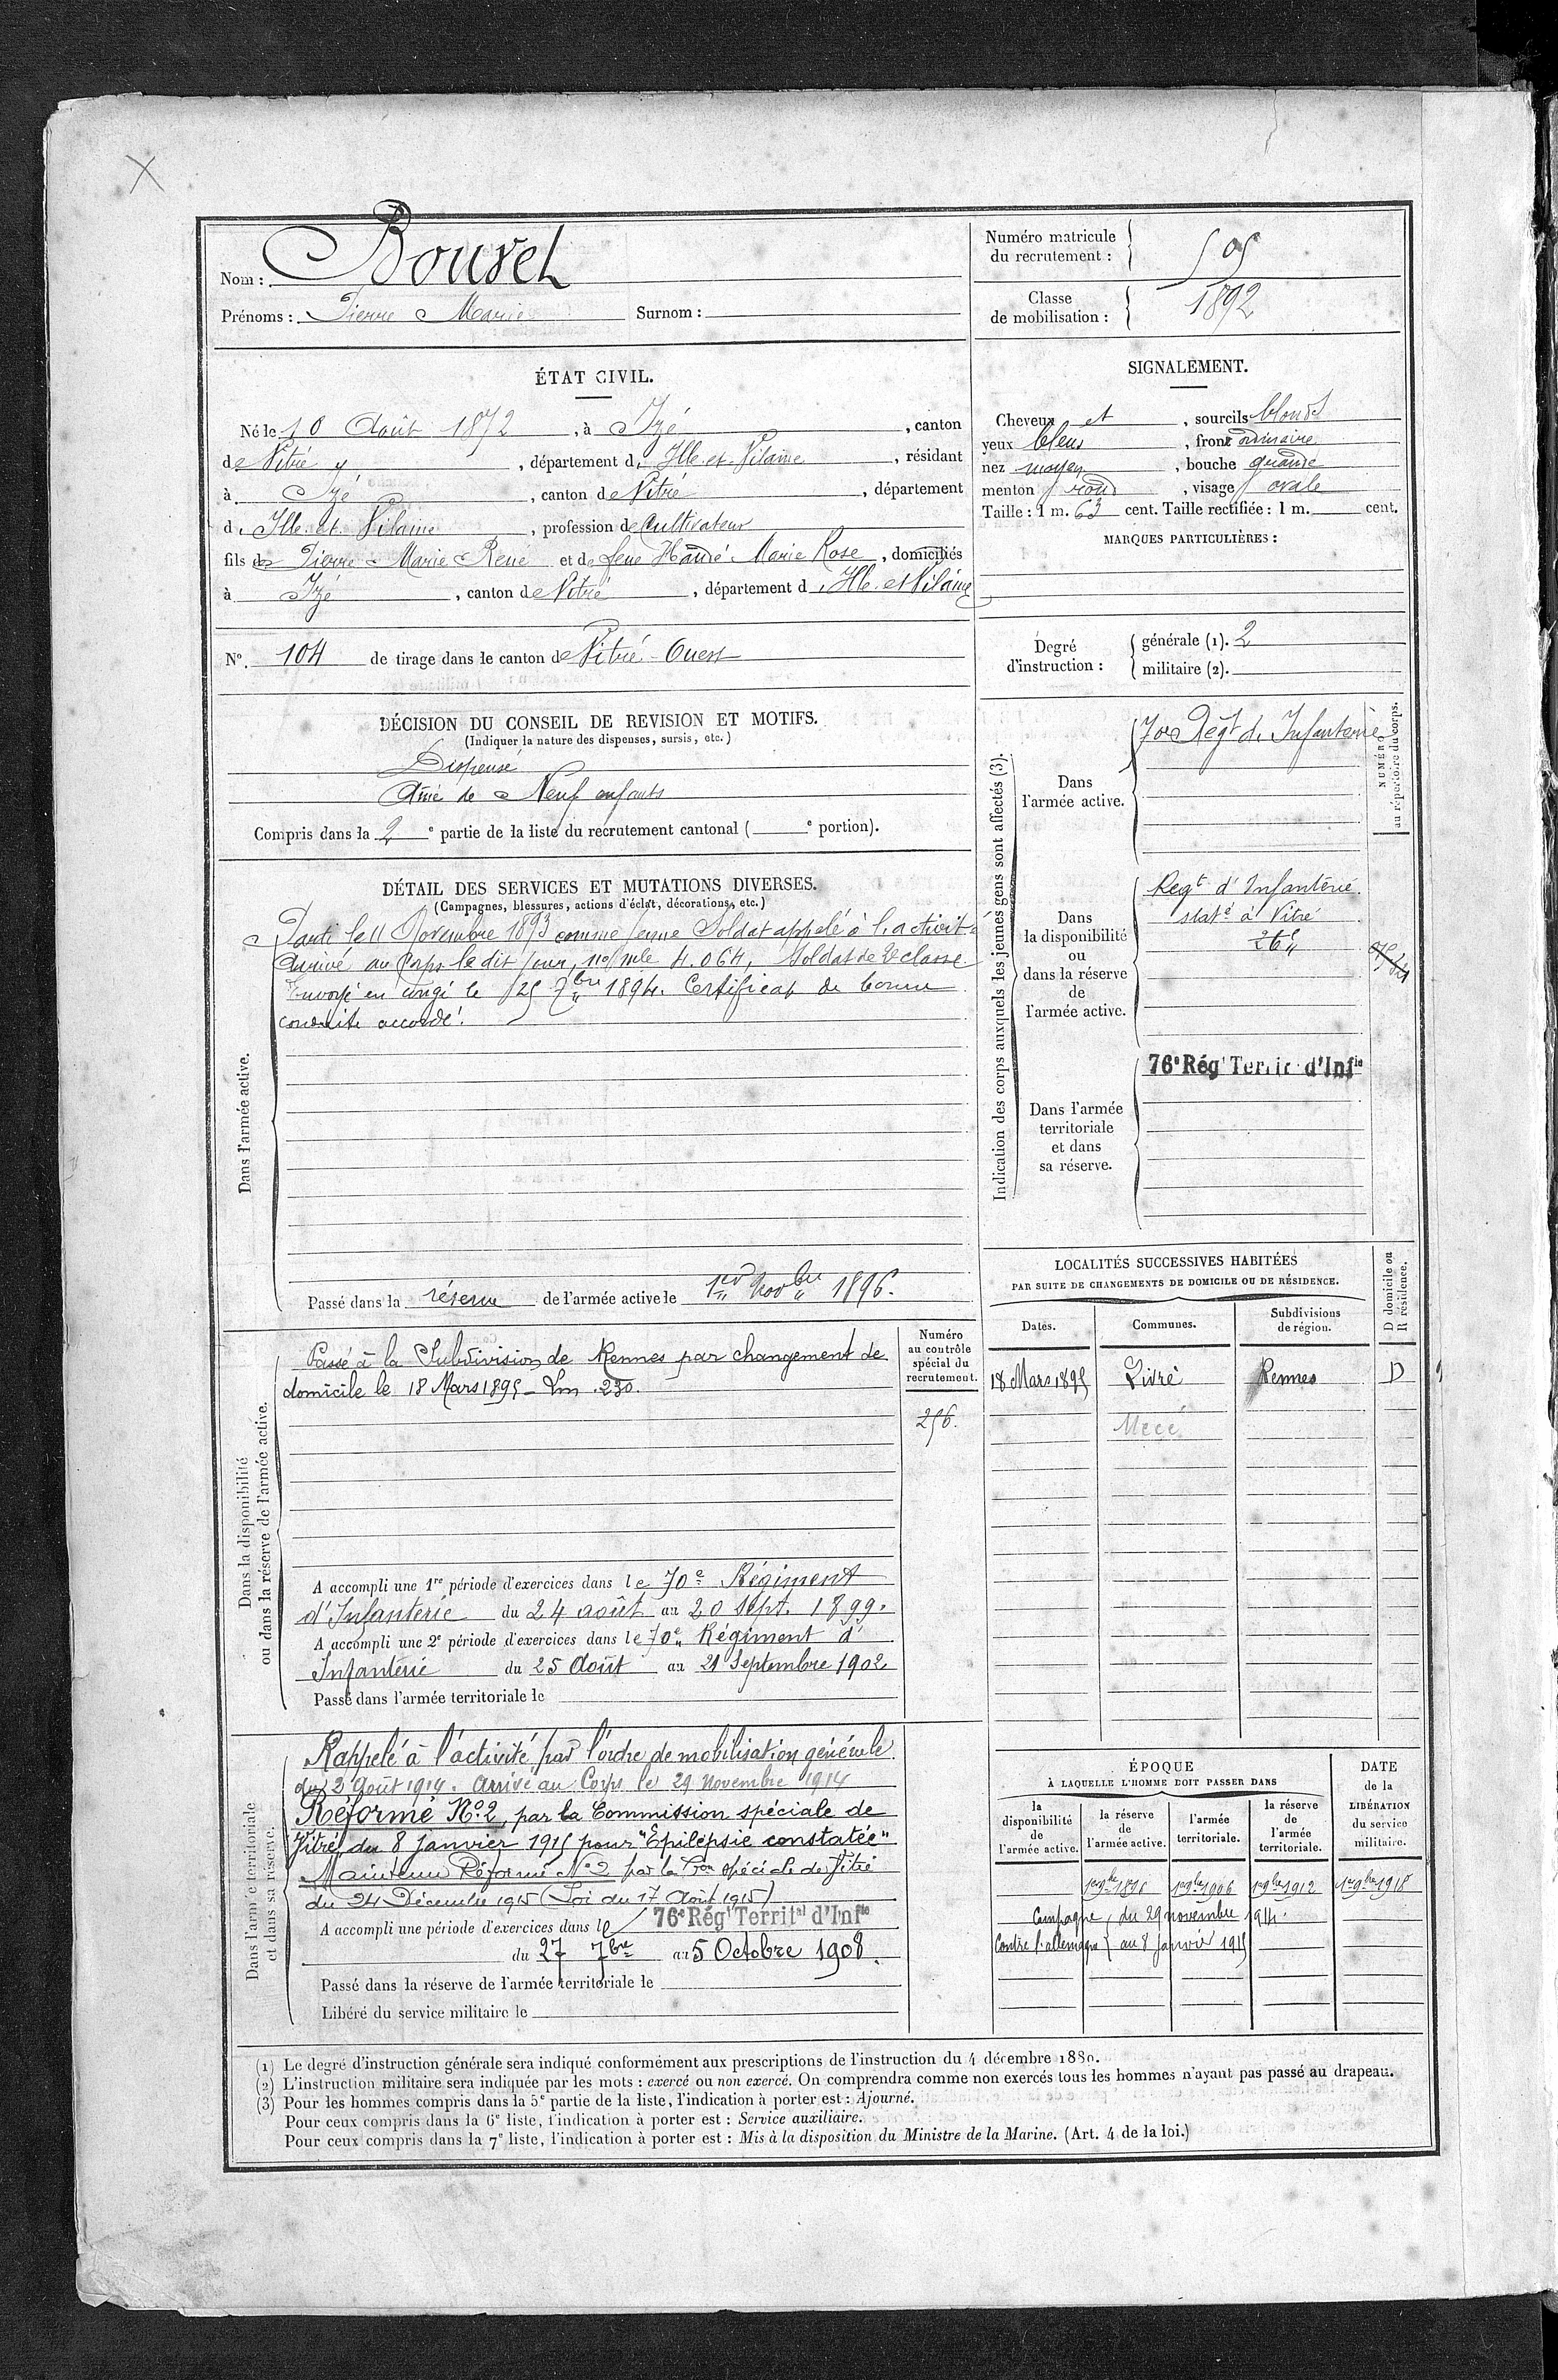 Nom : Bouvet
Prénoms : Pierre Marie Surnom :
Numéro matricule du recrutement : 505
Classe de mobilisation : 1892
ÉTAT CIVIL.
Né le 10 Août 1872, à Izé, canton
de Vitré, département d'Ille et Vilaine, résidant
à Izé, canton de Vitré, département
d'Ille et Vilaine, profession de Cultivateur
fils de Pierre Marie René et de feue Haudé Marie Rose, domiciliés
à Izé, canton de Vitré, département d'Ille et Vilaine
N° 104 de tirage dans le canton de Vitré Ouest
SIGNALEMENT.
Cheveux et, sourcils blonds
yeux bleus, front ordinaire
nez moyen, bouche grande
menton rond, visage ovale
Taille : 1 m. 63 cent. Taille rectifiée : 1 m. cent.
MARQUES PARTICULIÈRES :
Degré d'instruction :
générale (1). 2
militaire (2).
DÉCISION DU CONSEIL DE REVISION ET MOTIFS.
(Indiquer la nature des dispenses, sursis, etc.)
Dispensé
Aîné de Neuf enfants
Compris dans la 2e partie de la liste du recrutement cantonal ( e portion).
DÉTAIL DES SERVICES ET MUTATIONS DIVERSES.
(Campagnes, blessures, actions d'éclat, décorations, etc.)
Dans l'armée active.
Parti le 11 Novembre 1893 comme jeune Soldat appelé à l'activité
Arrivé au Corps le dit jour, no mle 4.064, Soldat de 2e classe
Envoyé en congé le 25 7bre 1894. Certificat de bonne
conduite accordé.
Passé dans la réserve de l'armée active le 1er Novbre 1896.
Indication des corps auxquels les jeunes gens sont affectés (3).
NUMÉRO au répertoire du corps.
Dans l'armée active.
70e Régt d'Infanterie
Dans la disponibilité ou dans la réserve de l'armée active.
Regt d'Infanterie
staté à Vitré
Dans l'armée territoriale et dans sa réserve.
76e Régt Territ d'Infie
LOCALITÉS SUCCESSIVES HABITÉES
PAR SUITE DE CHANGEMENTS DE DOMICILE OU DE RÉSIDENCE.
Dates. Communes. Subdivisions de région. D domicile ou R résidence.
18 Mars 1895 Livré Rennes D
Mecé
Dans la disponibilité ou dans la réserve de l'armée active.
Numéro au contrôle spécial du recrutement.
256.
Passé à la Subdivision de Rennes par changement de
domicile le 18 Mars 1895 - Lm 230.
A accompli une 1re période d'exercices dans le 70e Régiment
d'Infanterie du 24 août au 20 sept. 1899.
A accompli une 2e période d'exercices dans le 70e Régiment d'
Infanterie du 25 Août au 21 Septembre 1902
Passé dans l'armée territoriale le
Dans l'armée territoriale et dans sa réserve.
Rappelé à l'activité par l'ordre de mobilisation générale
du 2 Août 1914. Arrivé au Corps le 29 Novembre 1914
Réformé No 2, par la Commission spéciale de
Vitré du 8 Janvier 1915 pour "Epilepsie constatée"
Maintenu Réformé No 2 par la Con spéciale de Vitré
du 24 Décembre 1915 (Loi du 17 Août 1915)
A accompli une période d'exercices dans le 76e Régt Territal d'Infie
du 27 7bre au 5 Octobre 1908.
Passé dans la réserve de l'armée territoriale le
Libéré du service militaire le
ÉPOQUE
À LAQUELLE L'HOMME DOIT PASSER DANS
DATE de la LIBÉRATION du service militaire.
la disponibilité de l'armée active. la réserve de l'armée active. l'armée territoriale. la réserve de l'armée territoriale.
1er 9bre 1896 1er 9bre 1906 1er 9bre 1912 1er 9bre 1918
Campagne du 29 novembre 1914
Contre l'allemagne au 8 Janvier 1915
(1) Le degré d'instruction générale sera indiqué conformément aux prescriptions de l'instruction du 4 décembre 1889.
(2) L'instruction militaire sera indiquée par les mots : exercé ou non exercé. On comprendra comme non exercés tous les hommes n'ayant pas passé au drapeau.
(3) Pour les hommes compris dans la 5e partie de la liste, l'indication à porter est : Ajourné.
Pour ceux compris dans la 6e liste, l'indication à porter est : Service auxiliaire.
Pour ceux compris dans la 7e liste, l'indication à porter est : Mis à la disposition du Ministre de la Marine. (Art. 4 de la loi.)